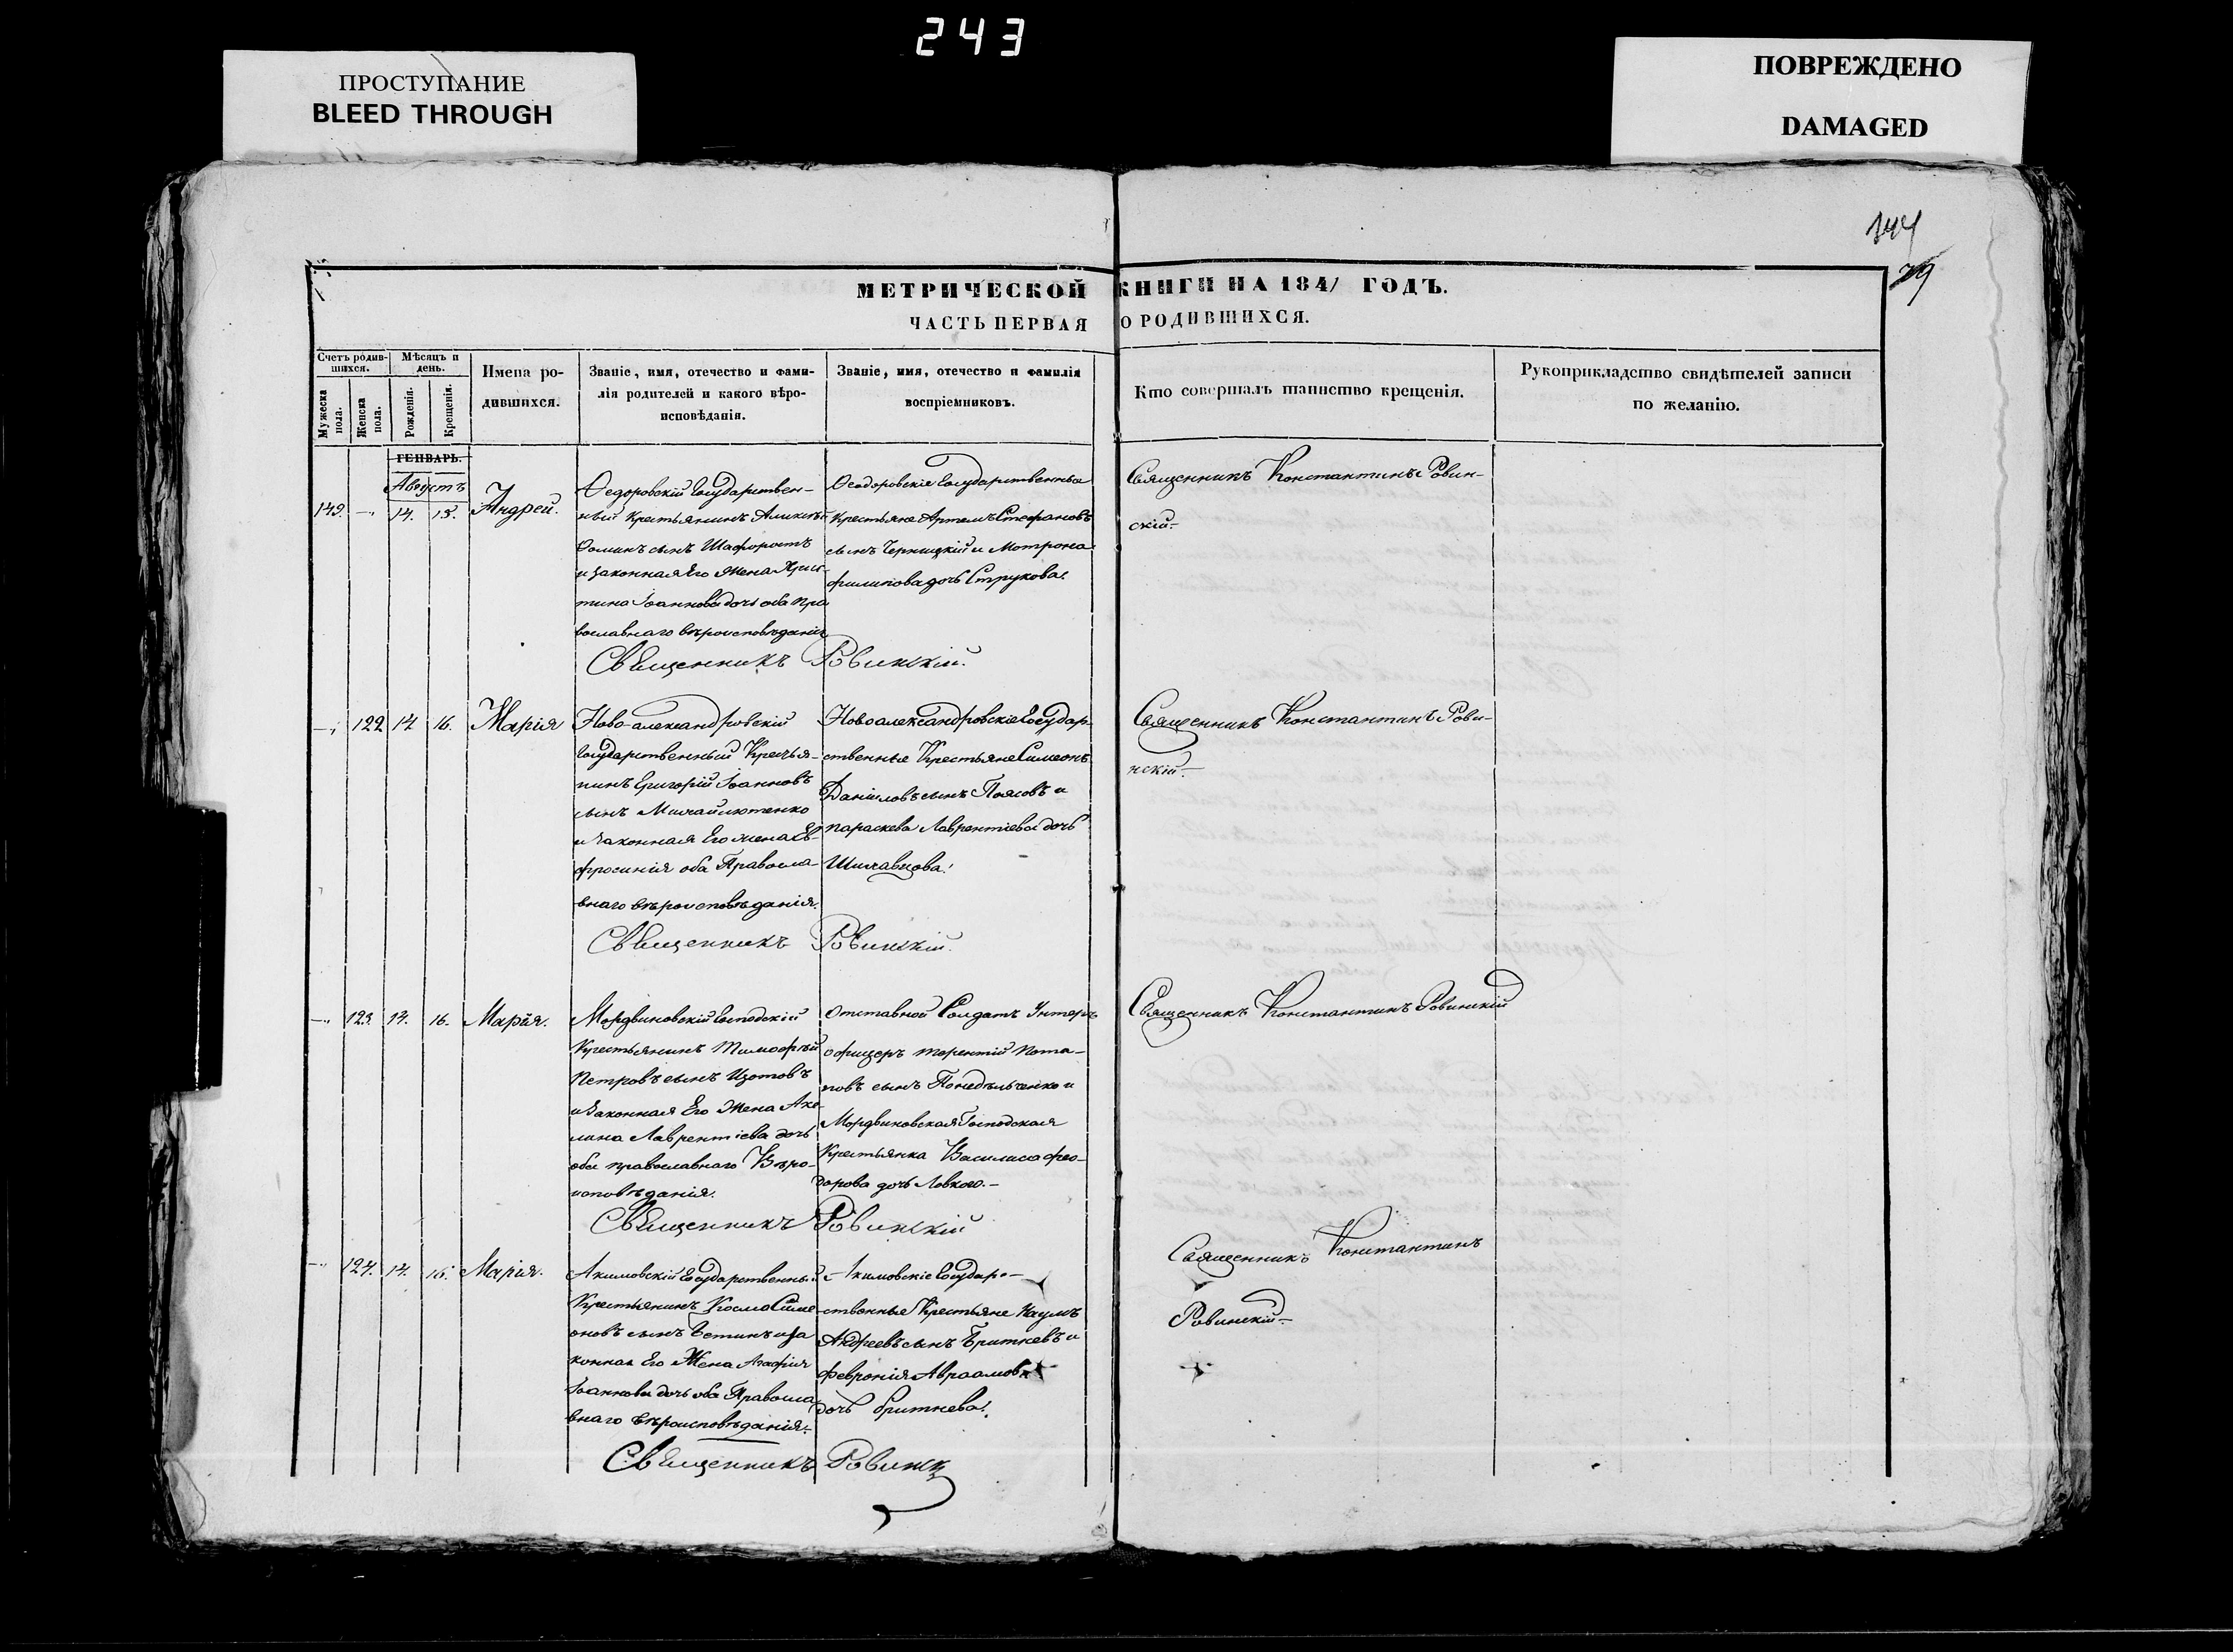 243
ПРОСТУПАНИЕ
BLEED THROUGH
ПОВРЕЖДЕНО
DAMAGED
МЕТРИЧЕСКОЙ КНИГИ НА 1841 ГОДЪ.
ЧАСТЬ ПЕРВАЯ О РОДИВШИХСЯ.
Счетъ родив-
шихся.
Мужеска
пола.
Женска
пола.
Мѣсяцъ и
день.
Рожденія.
Крещенія.
Имена ро-
дившихся.
Званіе, имя, отечество и фами-
лія родителей и какого вѣро-
исповѣданія.
Званіе, имя, отечество и фамилія
воспріемниковъ.
Кто совершалъ таинство крещенія.
Рукоприкладство свидѣтелей записи
по желанію.
ГЕНВАРЬ.
Августъ
149. 14. 15. Андрей.
Ѳедоровскій Государствен-
ный Крестьянинъ
сынъ Шафоростъ
и законная Его Жена Хрис-
тина Іоаннова дочь оба Пра
вославнаго вѣроисповѣданія
Ѳеодоровскіе Государственные
Крестьяне Артемъ Стефановъ
сынъ и Мотрона
филипова дочь Струкова.
Священникъ Константинъ Ровин-
скій.
Священникъ Ровинскій.
122 14 16. Марія
Ново-александровскій
Государственный Крестья-
нинъ Григорій Іоанновъ
сынъ
и Законная Его жена Ев-
фросинія оба Правосла-
внаго вѣроисповѣданія.
Новоалександровскіе Государ-
ственные Крестьяне Симеонъ
Даніиловъ сынъ Поясовъ и
параскева Лаврентіева дочь
Священникъ Константинъ Рови-
нскій.
Священникъ Ровинскій.
123. 14. 16. Марія.
Мордвиновскій Господскій
Крестьянинъ Тимофѣй
Петровъ сынъ Изотовъ
и Законная Его Жена Аке-
лина Лаврентіева дочь
оба православнаго Вѣро-
исповѣданія.
Отставной Солдатъ Унтеръ
офицеръ терентій Пота-
повъ сынъ Понедѣльченко и
Мордвиновская Господская
Крестьянка Василиса фео-
дорова дочь
Священникъ Константинъ Ровинскій
Священникъ Ровинскій
124. 14. 16. Марія.
Акимовскій Государственный
Крестьянинъ Косма Симе
оновъ сынъ и За
конная Его Жена Агафія
Іоаннова дочь оба Правосла
внаго вѣроисповѣданія.
Акимовскіе Государ-
ственные Крестьяне Наумъ
Андреевъ сынъ Бритневъ и
феевронія Авраамова
дочь бритнева.
Священникъ Константинъ
Ровинскій
Священникъ Ровинск